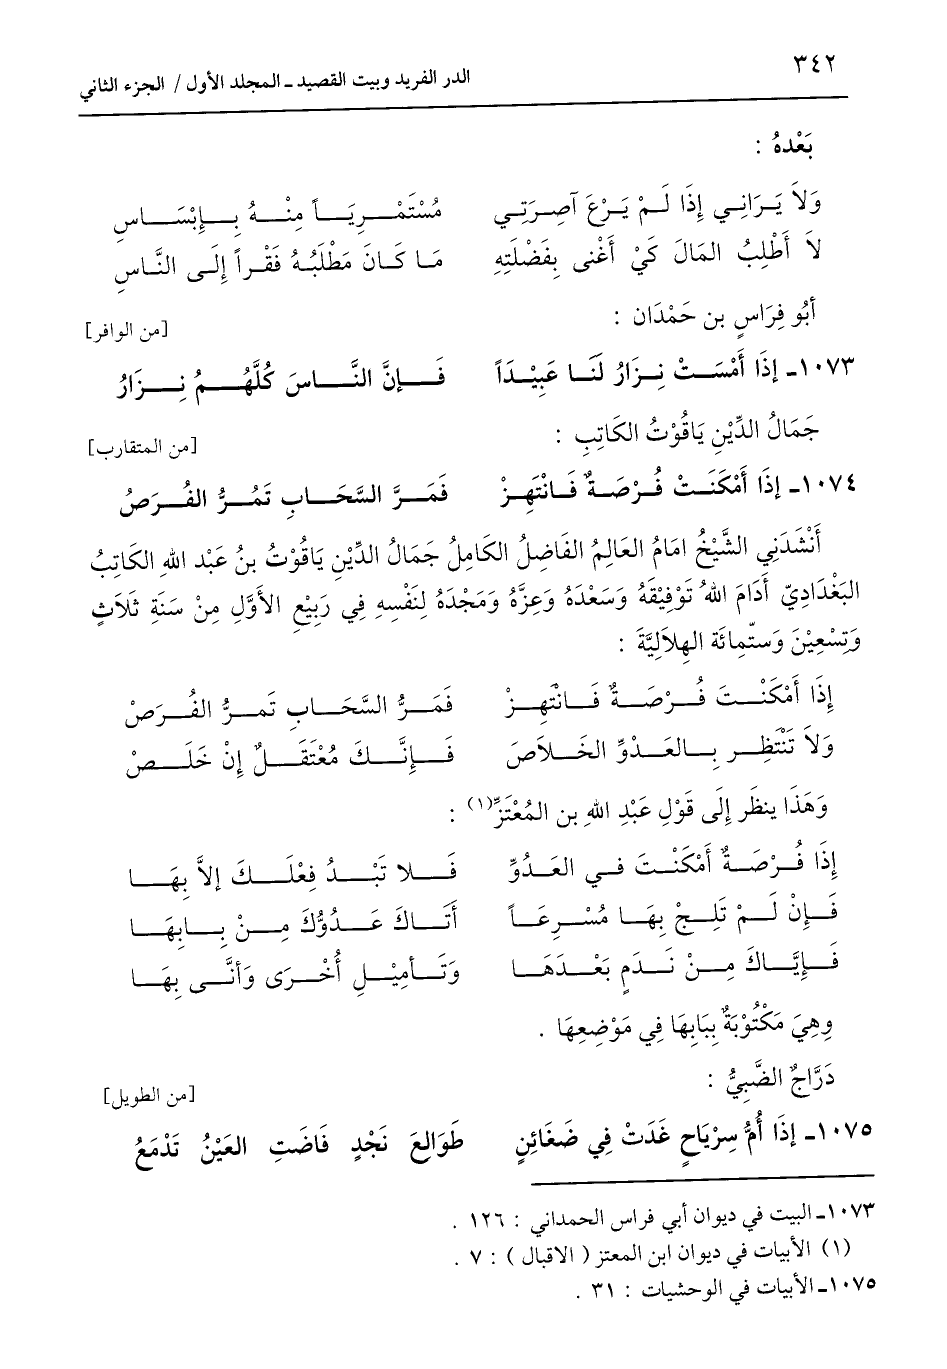 ٣٤٢
الدر الفريد وبيت القصيد ـ المجلد الأول / الجزء الثاني
بَعْدهُ :
وَلاَ يَرَانِي إِذَا لَمْ يَرْعَ آصِرَتِي مُسْتَمْرِيَاً مِنْهُ بِإِبْسَاسِ
لاَ أَطْلِبُ المَالَ كَيْ أَغْنى بِفَضْلَتِهِ مَا كَانَ مَطْلَبُهُ فَقْراً إِلَى النَّاسِ
أَبُو فِرَاسٍ بن حَمْدَان :
[من الوافر]
١٠٧٣ـ إِذَا أَمْسَتْ نِزَارُ لَنَا عَبِيْدَاً فَإِنَّ النَّاسَ كُلَّهُمُ نِزَارُ
جَمَالُ الدِّيْنِ يَاقُوْتُ الكَاتِبِ :
[من المتقارب]
١٠٧٤ـ إِذَا أَمْكَنَتْ فُرْصَةٌ فَانْتَهِزْ فَمَرَّ السَّحَابِ تَمُرُّ الفُرَصُ
أَنْشَدَنِي الشَّيْخُ امَامُ العَالِمُ الفَاضِلُ الكَامِلُ جَمَالُ الدِّيْنِ يَاقُوْتُ بنُ عَبْد اللهِ الكَاتِبُ
البَغْدَادِيّ أَدَامَ اللهُ تَوْفِيْقَهُ وَسَعْدَهُ وَعِزَّهُ وَمَجْدَهُ لِنَفْسِهِ فِي رَبِيْعِ الأَوَّلِ مِنْ سَنَةِ ثَلَاثٍ
وَتِسْعِيْنَ وَستّمِائَة الهِلاَلِيَّةَ :
إِذَا أَمْكَنْتَ فُرْصَةٌ فَانْتْهِزْ فَمَرُّ السَّحَابِ تَمرُّ الفُرَصْ
وَلاَ تَنْتَظِر بِالعَدْوِّ الخَلاَصَ فَإِنَّكَ مُعْتَقَلٌ إِنْ خَلَصْ
وَهَذَا ينظَر إِلَى قَوْلِ عَبْدِ اللهِ بن المُعْتَزِّ(١) :
إِذَا فُرْصَةٌ أَمْكَنْتَ في العَدُوِّ فَلا تَبْدُ فِعْلَكَ إلاَّ بِهَا
فَإِنْ لَمْ تَلِجْ بِهَا مُسْرِعَاً أَتَاكَ عَدُوُّكَ مِنْ بِابِهَا
فَإِيَّاكَ مِنْ نَدَمٍ بَعْدَهَا وَتَأمِيْلِ أُخْرَى وَأنَّى بِهَا
وِهِيَ مَكْتُوْبَةٌ بِبَابِهَا فِي مَوْضِعِهَا .
دَرَّاجٌ الضَّبِيُّ :
[من الطويل]
١٠٧٥ـ إِذَا أُمُّ سِرْيَاحٍ غَدَتْ فِي ضَغَائِنٍ طَوَالعَ نَجْدٍ فَاضَتِ العَيْنُ تَدْمَعُ
١٠٧٣ـ البيت في ديوان أبي فراس الحمداني : ١٢٦ .
(١) الأبيات في ديوان ابن المعتز ( الاقبال ) : ٧ .
١٠٧٥ـ الأبيات في الوحشيات : ٣١ .